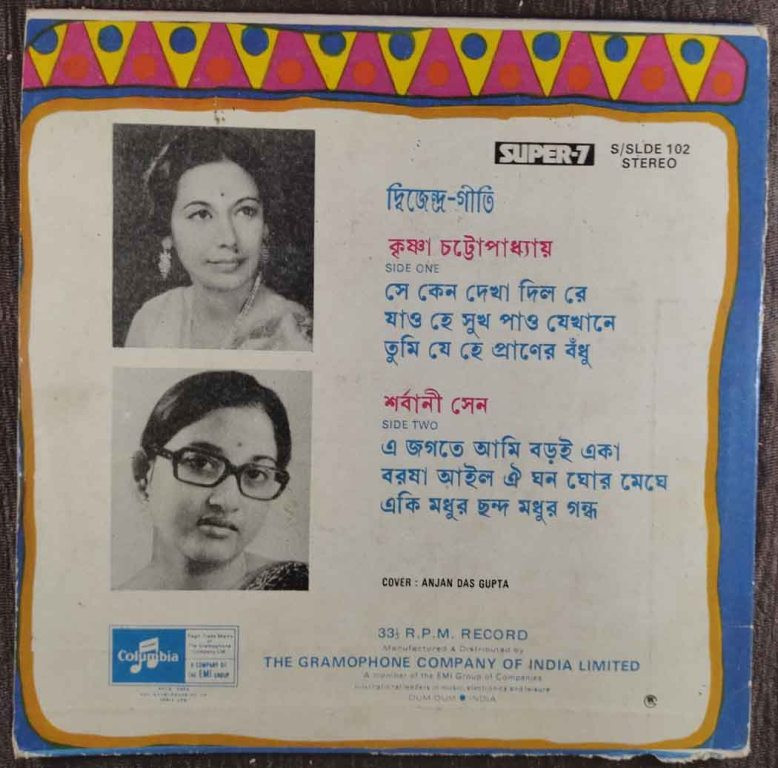 SUPER-7
S/SLDE 102
STEREO
দ্বিজেন্দ্র-গীতি
কৃষ্ণা চট্টোপাধ্যায়
SIDE ONE
সে কেন দেখা দিল রে
যাও হে সুখ পাও যেখানে
তুমি যে হে প্রাণের বঁধু
শর্বানী সেন
SIDE TWO
এ জগতে আমি বড়ই একা
বরষা আইল ঐ ঘন ঘোর মেঘে
একি মধুর ছন্দ মধুর গন্ধ
COVER : ANJAN DAS GUPTA
Columbia
Regd. Trade Marks
of
The Gramophone
Company Ltd.
A COMPANY OF
THE EMI GROUP
33⅓ R.P.M. RECORD
Manufactured & Distributed by
THE GRAMOPHONE COMPANY OF INDIA LIMITED
A member of the EMI Group of Companies
International leaders in music, electronics and leisure
DUM DUM ● INDIA